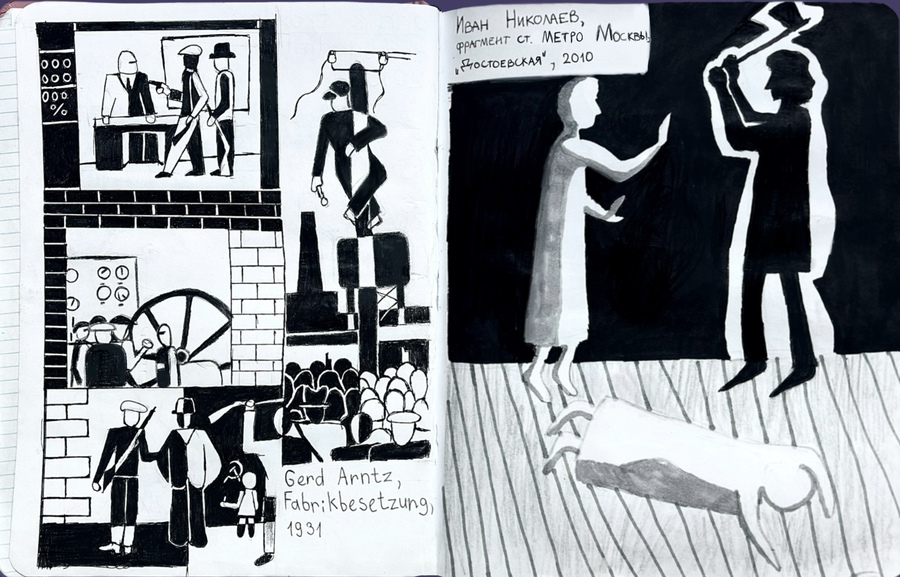 %
Gerd Arntz,
Fabrikbesetzung,
1931
Иван Николаев,
фрагмент ст. метро Москвы,
"Достоевская", 2010